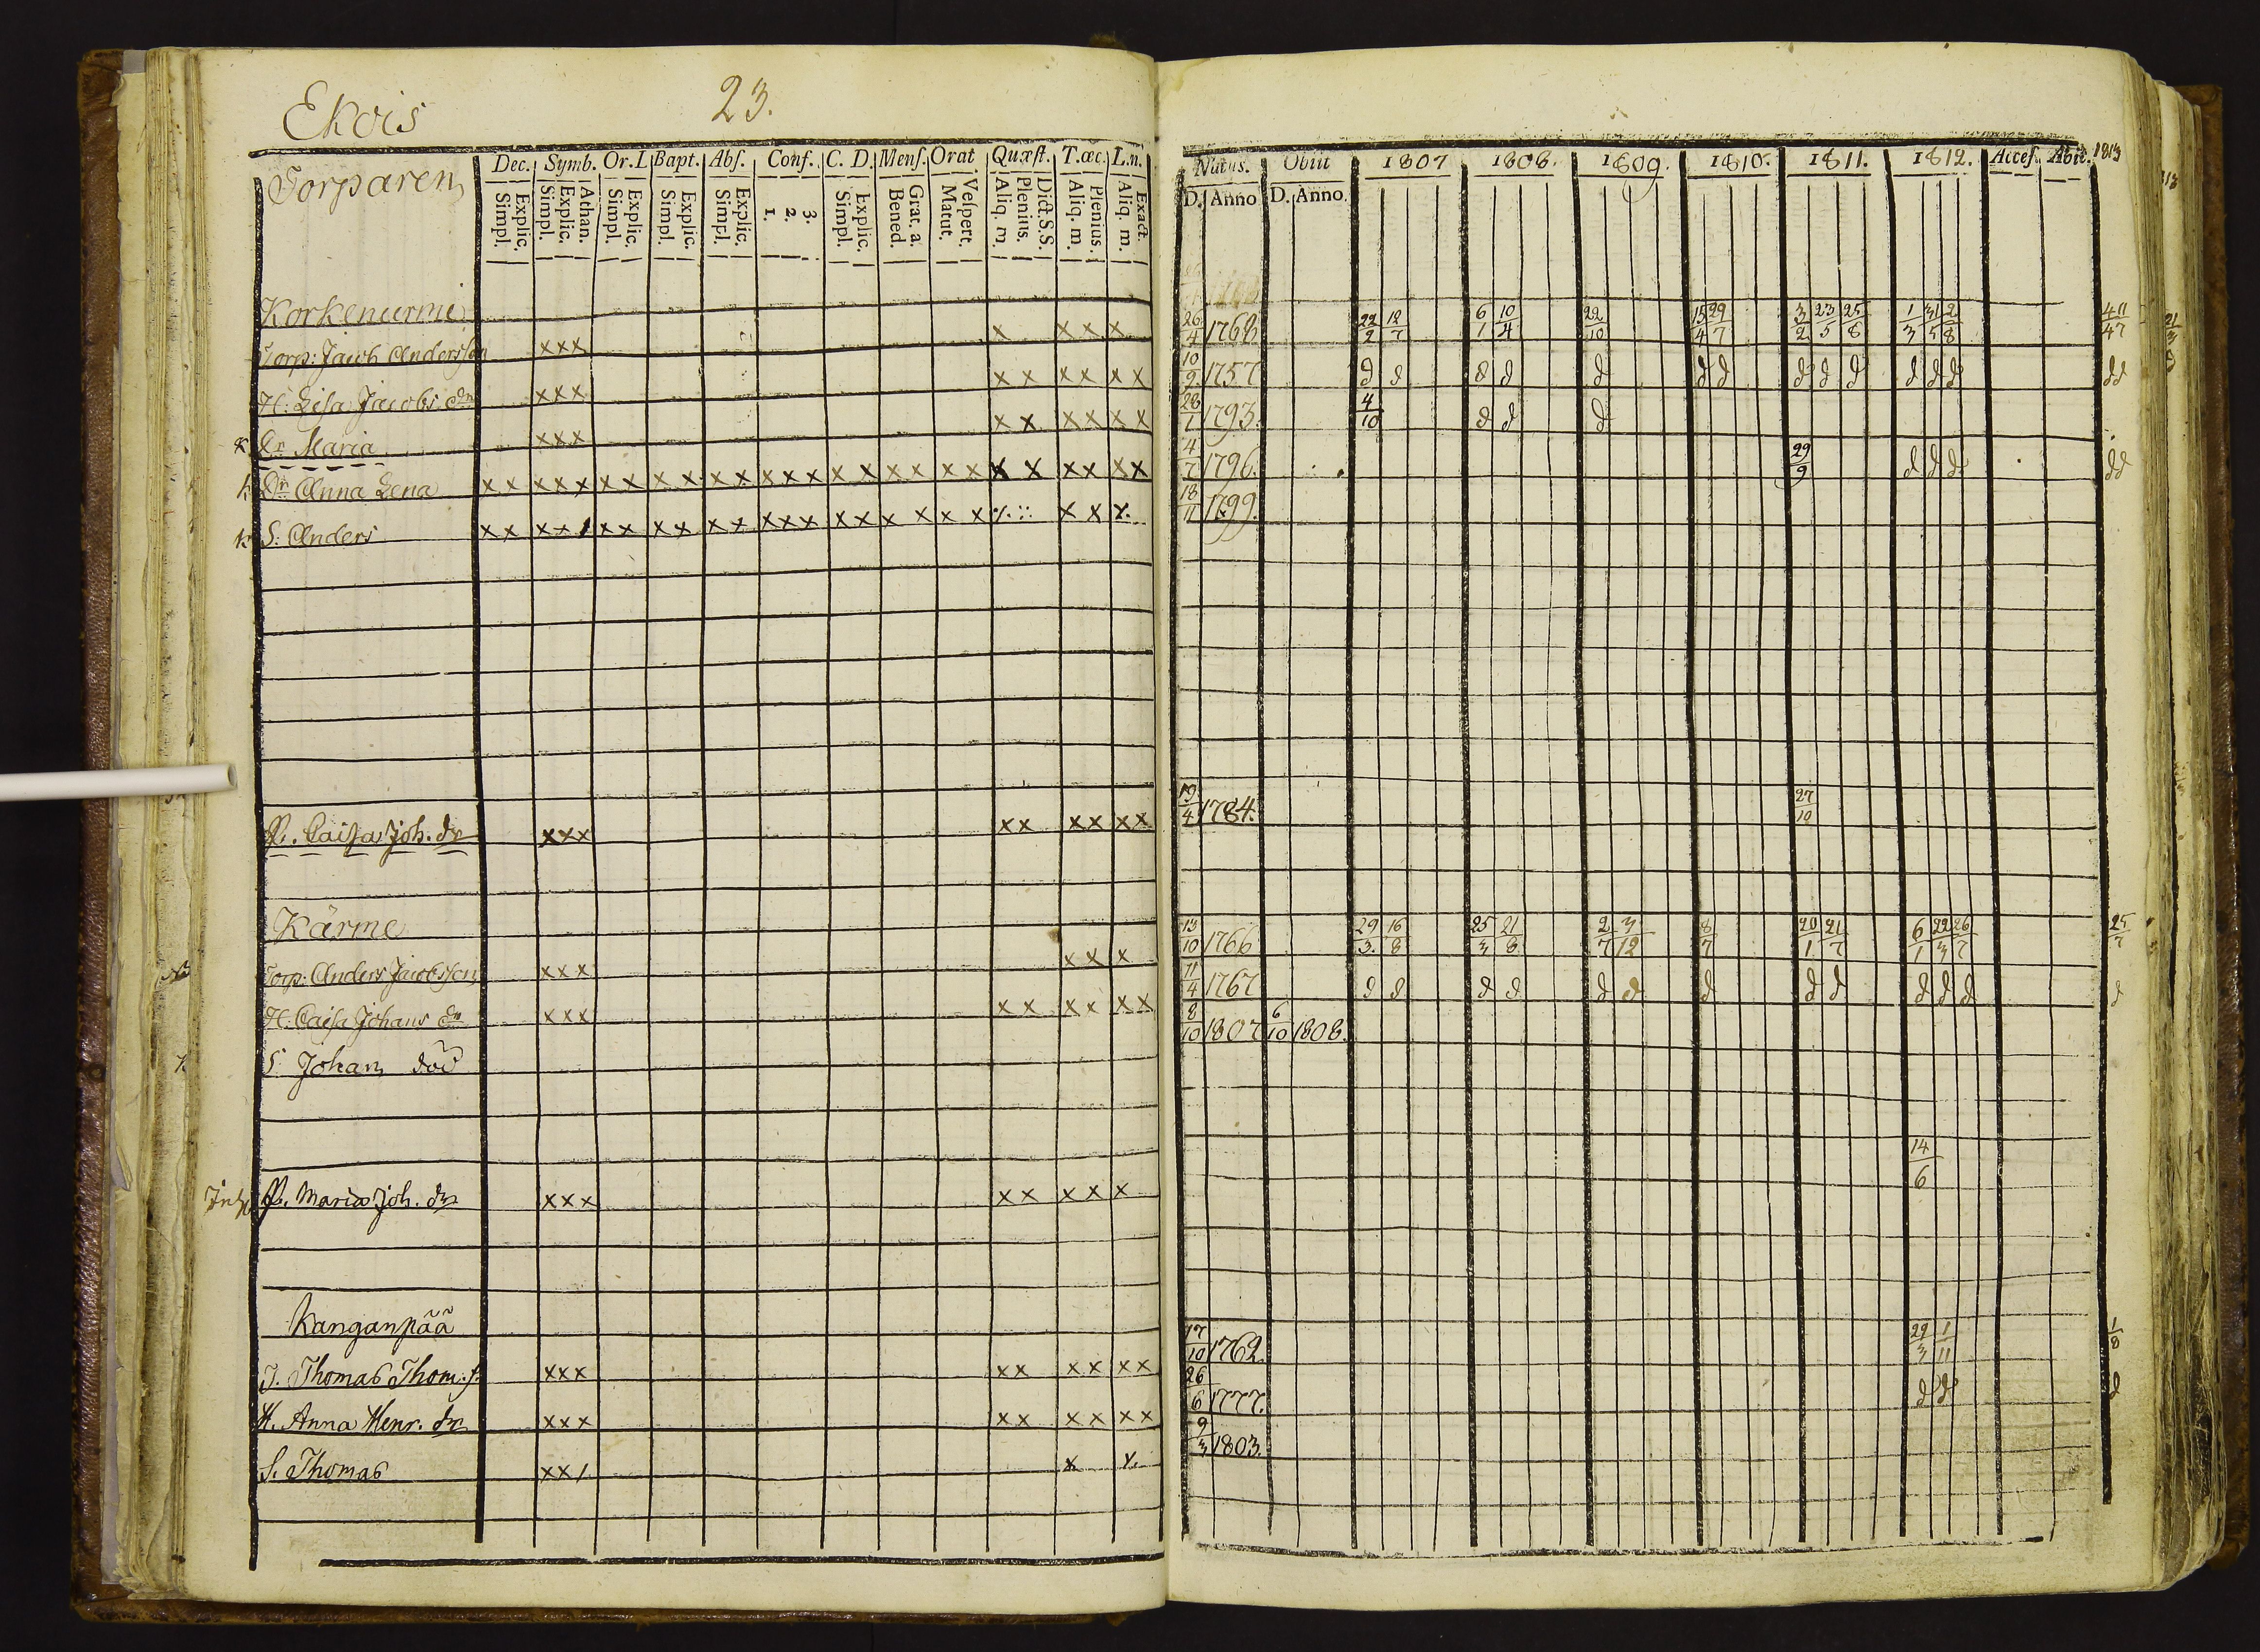 Ekois 23.
Torparen
Dec. Symb. Or. L Bapt. Abs. Conf. C. D. Mens. Orat Quæst. T. œc. L. n.
Explic. Simpl. Athan. Explic. Simpl. Explic. Simpl. Explic. Simpl. Explic. Simpl. 3. 2. 1. Explic. Simpl. Grat. a. Bened. Vespert. Matut. Dict. S.S. Plenius. Aliq. m. Plenius. Aliq. m. Exact. Aliq. m.
Natus. Obiit 1807 1808. 1809. 1810. 1811. 1812. Acces. Abit. 1813
D. Anno D. Anno.
Korkenurmi
Torp: Jacob Andersson xxx x xxx x 26/4 1768 22/2 12/7 6/1 10/4 22/10 15/4 29/7 3/2 23/5 25/8 1/3 31/5 2/8
H: Lisa Jacobs dr xxx xx xx xx 10/9 1757 d d d d d d d d d d d d d d d
Dr Maria xxx xx xx xx 28/1 1793. 4/10 d d d
k Dr Anna Lena xx xxx xx xx xx xxx xx xx xx x x xx xx 4/7 1796. 29/9 d d d d d
k S: Anders xx xx/ xx xx xx xxx xx x x x x x x x 18/11 1799.
P. Caisa Joh. dr xxx xx xx xx 19/4 1784. 27/10
Kärme
Torp: Anders Jacobsson xxx xx x 13/10 1766 29/3. 16/8 25/3 21/8 2/7 3/12 8/7 20/1 21/7 6/1 22/3 26/7 25/7
H: Caisa Johans dr xxx xx xx xx 11/4 1767 d d d d d d d d d d d d d
S. Johan död 8/10 1807 6/10 1808.
P. Maria Joh. dr xxx xx xx x 14/6
Kanganpää
T. Thomas Thom. s. xxx xx xx xx 17/10 1762 29/3 1/11 1/8
H. Anna Henr. dr xxx xx xx xx 26/6 1777. d d d
S. Thomas xx/ x 9/3 1803.